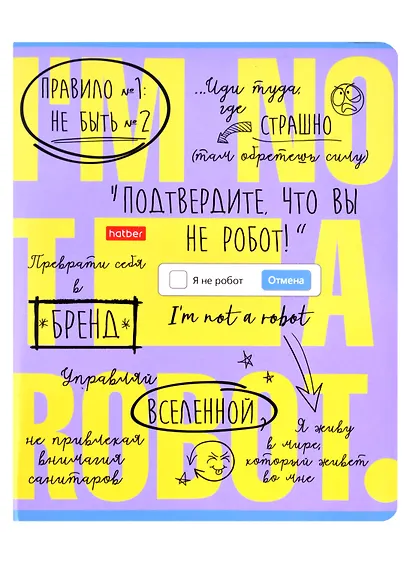 I'M NO
T A
ROBOT.
ПРАВИЛО №1:
НЕ БЫТЬ №2
...Иди туда,
где
СТРАШНО
(там обретешь силу)
"ПОДТВЕРДИТЕ, ЧТО ВЫ
НЕ РОБОТ!"
hatber
Преврати себя
в
*БРЕНД*
Я не робот
Отмена
I'm not a robot
Управляй
ВСЕЛЕННОЙ,
не привлекая
внимания
санитаров
Я живу
в мире,
который живет
во мне